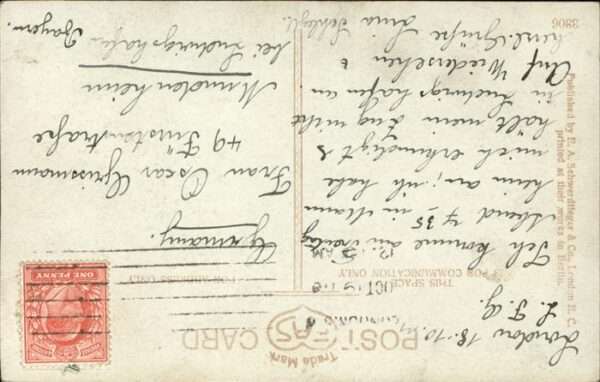 POST CARD
Trade Mark
EAS
THIS SPACE
FOR COMMUNICATION ONLY
FOR ADDRESS ONLY
OCT 19
ONE PENNY
London 18.10.
L. F. G.
Ich komme am Freitag
Abend 7.35 in Mann
heim an; ich habe
mich erkundigt &
hält mein Zug nicht
in Ludwigshafen an
Auf Wiedersehen &
herl. Grüße Lina
Germany.
Frau Oscar Grissmann
49 Fürstenstraße
Mundenheim
bei Ludwigshafen
Bayern.
Published by E. A. Schwerdtfeger & Co., London E. C.
printed at their works in Berlin.
3306